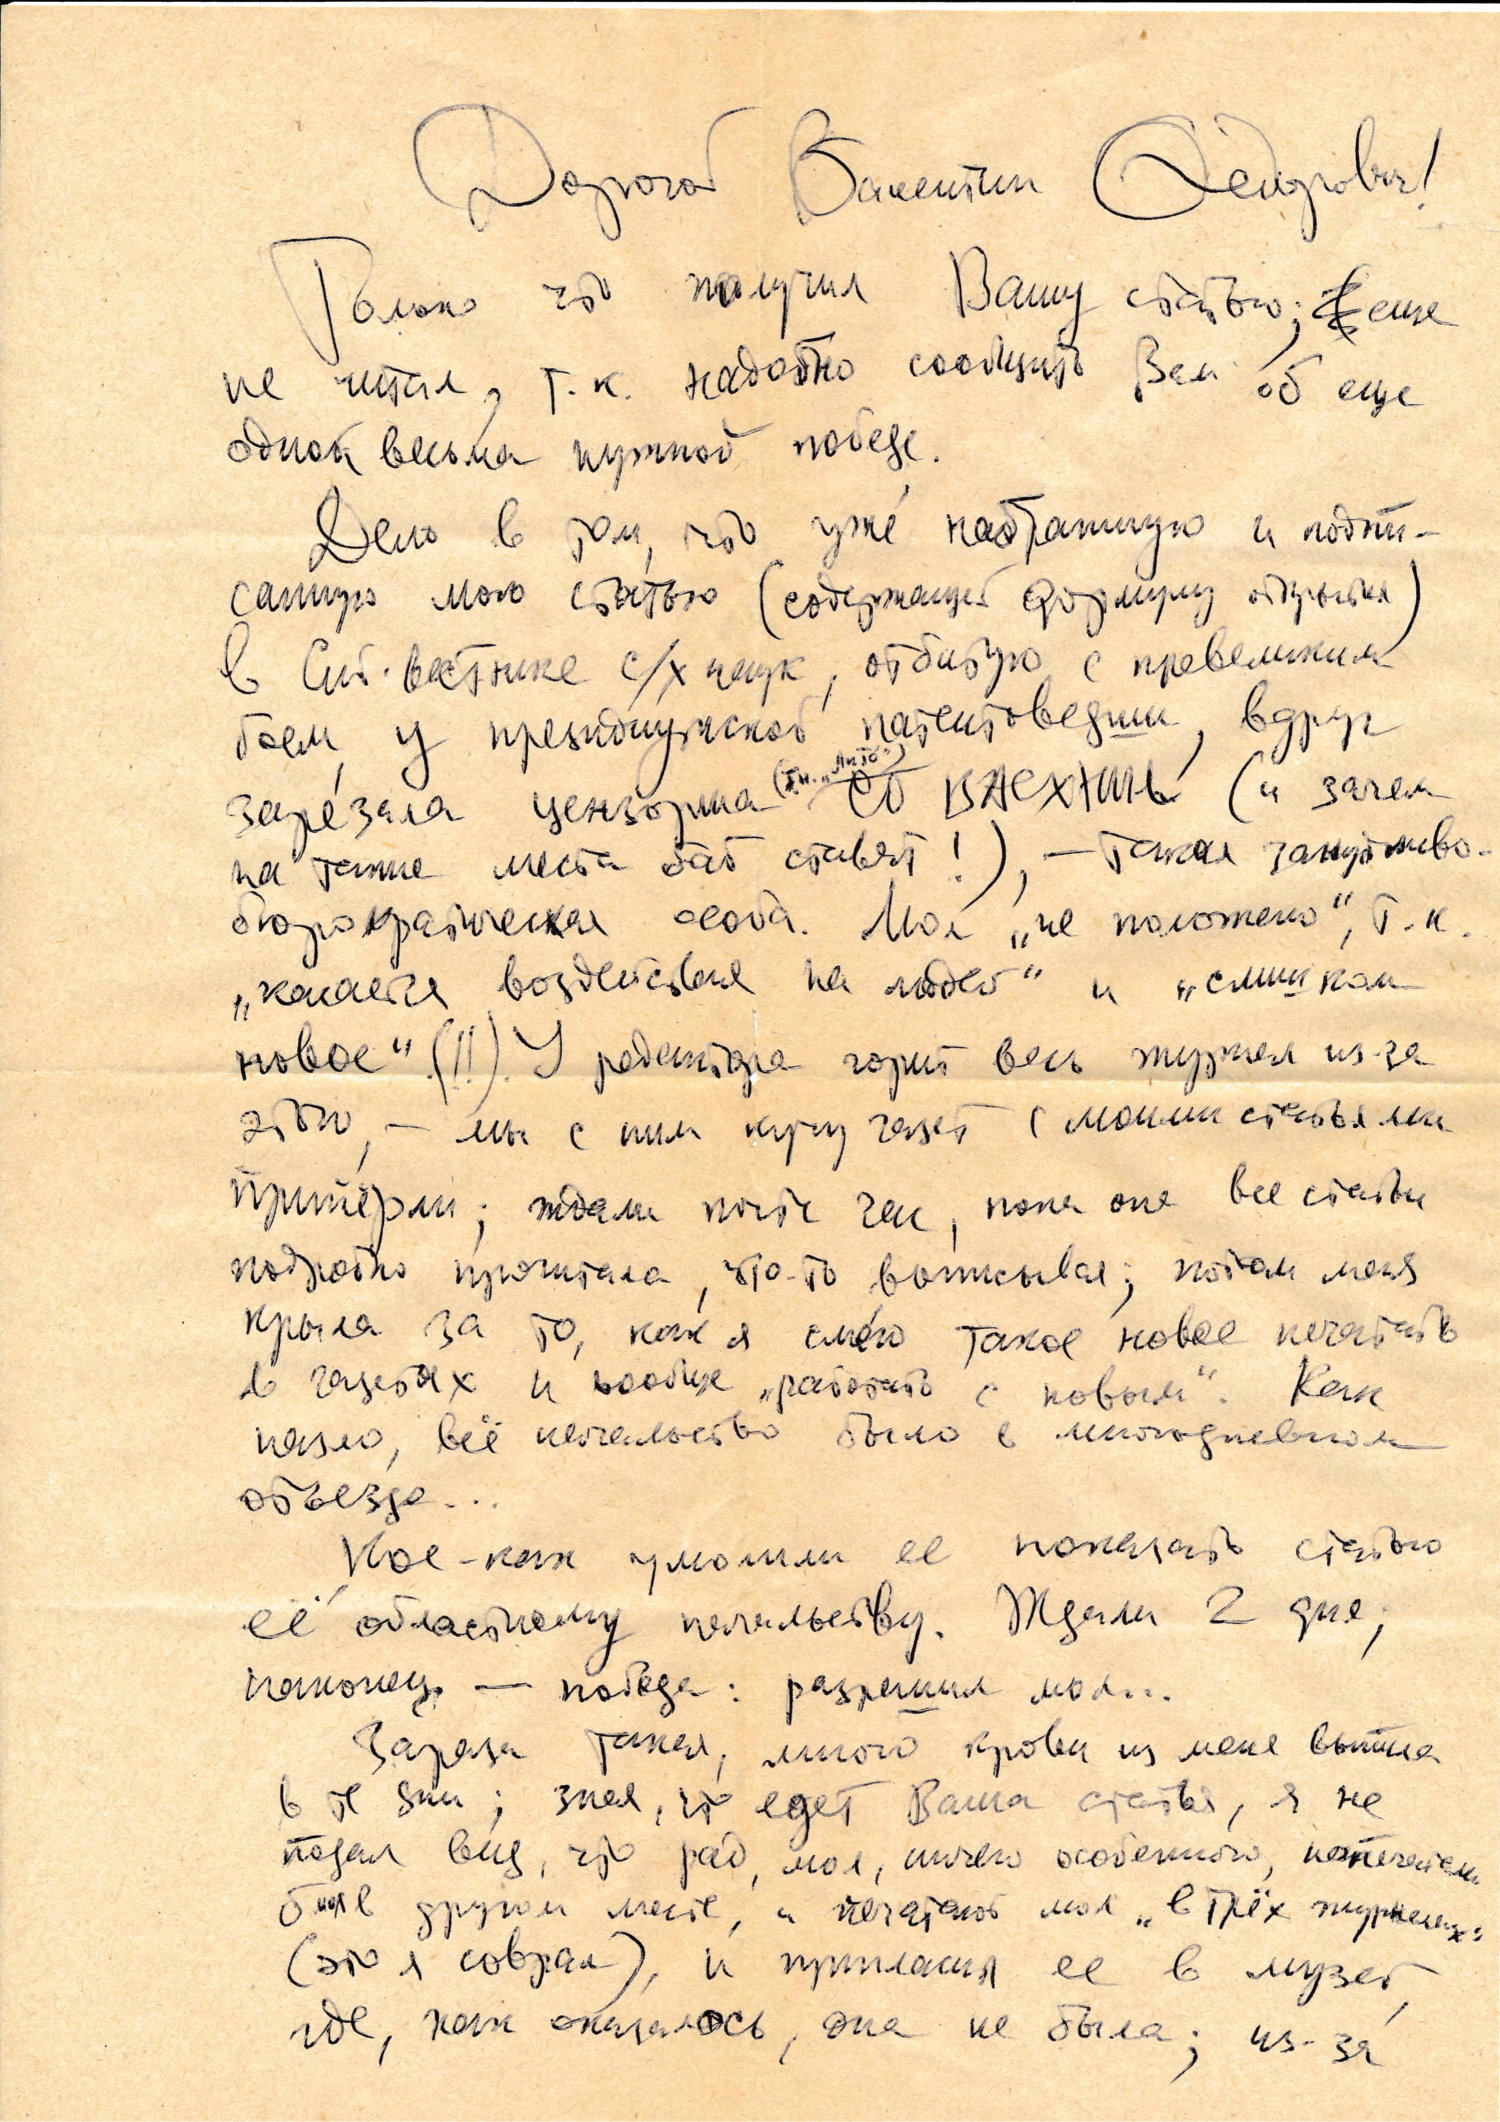 Дорогой Валентин Фёдорович!
Только что получил Вашу статью; еще
не читал, т.к. надобно сообщить Вам об еще
одной весьма нужной победе.
Дело в том, что уже набранную и подпи-
санную мою статью (содержащей формулу открытия)
в Сиб. вестнике с/х наук, отбитую с превеликим
боем у президиумской патентоведши, вдруг
зарезала цензорша (т.н. „Лито") СО ВАСХНИЛ (и зачем
на такие места баб ставят!), — такая занудливо-
бюрократическая особа. Мол „не положено", т.к.
„касается воздействия на людей" и „слишком
новое" (!!). У редактора горит весь журнал из-за
этого, — мы с ним кучу газет с моими статьями
припёрли; ждали почти час, пока она все статьи
подробно прочитала, что-то выписывая; потом меня
крыла за то, как я смею такое новое печатать
в газетах и вообще „работать с новым". Как
назло, всё начальство было в многодневном
отъезде...
Кое-как умолили ее показать статью
её областному начальству. Ждали 2 дня;
наконец — победа: разрешил мол...
Зараза такая, много крови из меня выпила
в те дни; зная, что едет Ваша статья, я не
подал вид, что рад, мол, ничего особенного, напечатали
бы и в другом месте, и печатают мол „в трёх журналах"
(это я соврал), и пригласил ее в музей,
где, как оказалось, она не была; из-за